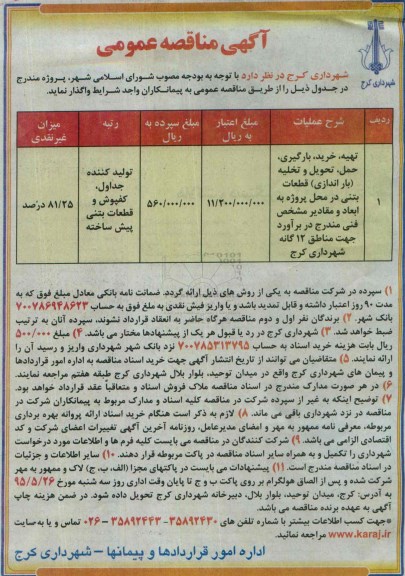 آگهی مناقصه عمومی
شهرداری کرج
شهرداری کرج در نظر دارد با توجه به بودجه مصوب شورای اسلامی شهر، پروژه مندرج
در جدول ذیل را از طریق مناقصه عمومی به پیمانکاران واجد شرایط واگذار نماید.
ردیف
شرح عملیات
مبلغ اعتبار به ریال
مبلغ سپرده به ریال
رتبه
میزان غیرنقدی
۱
تهیه، خرید، بارگیری،
حمل، تحویل و تخلیه
(بار اندازی) قطعات
بتنی در محل پروژه به
ابعاد و مقادیر مشخص
فنی مندرج در برآورد
جهت مناطق ۱۲ گانه
شهرداری کرج
۱۱/۲۰۰/۰۰۰/۰۰۰
۵۶۰/۰۰۰/۰۰۰
تولید کننده
جداول،
کفپوش و
قطعات بتنی
پیش ساخته
۸۱/۲۵ درصد
۱) سپرده در شرکت مناقصه به یکی از روش های ذیل ارائه گردد. ضمانت نامه بانکی معادل مبلغ فوق که به
مدت ۹۰ روز اعتبار داشته و قابل تمدید باشد و یا واریز فیش نقدی به ملغ فوق به حساب ۷۰۰۷۸۶۹۴۸۶۲۳
بانک شهر. ۲) برندگان نفر اول و دوم مناقصه هرگاه حاضر به انعقاد قرارداد نشوند، سپرده آنان به ترتیب
ضبط خواهد شد. ۳) شهرداری کرج در رد یا قبول هر یک از پیشنهادها مختار می باشد. ۴) مبلغ ۵۰۰/۰۰۰
ریال بابت هزینه خرید اسناد به حساب ۷۰۰۷۸۵۳۱۳۷۹۵ نزد بانک شهر شهرداری واریز و رسید آن را
ارائه نمایند. ۵) متقاضیان می توانند از تاریخ انتشار آگهی جهت خرید اسناد مناقصه به اداره امور قراردادها
و پیمان های شهرداری کرج واقع در میدان توحید، بلوار بلال شهرداری کرج طبقه هفتم مراجعه نمایند.
۶) در هر صورت مدارک مندرج در اسناد مناقصه ملاک فروش اسناد و متعاقباً عقد قرارداد خواهد بود.
۷) توضیح اینکه به غیر از سپرده شرکت در مناقصه کلیه اسناد و مدارک مربوط به پیمانکاران شرکت در
مناقصه در نزد شهرداری باقی می ماند. ۸) لازم به ذکر است هنگام خرید اسناد ارائه پروانه بهره برداری
مربوطه، معرفی نامه ممهور به مهر و امضای مدیرعامل، روزنامه آخرین آگهی تغییرات اعضای شرکت و کد
اقتصادی الزامی می باشد. ۹) شرکت کنندگان در مناقصه می بایست کلیه فرم ها و اطلاعات مورد درخواست
شهرداری را تکمیل و به همراه سایر اسناد مناقصه در پاکت مربوطه قرار دهند. ۱۰) سایر اطلاعات و جزئیات
در اسناد مناقصه مندرج است. ۱۱) پیشنهادات می بایست در پاکتهای مجزا (الف، ب، ج) لاک و ممهور به مهر
شرکت شده و پس از الصاق هولگرام بر روی پاکت ب و ج تا پایان وقت اداری روز سه شنبه مورخ ۹۵/۵/۲۶
به آدرس: کرج، میدان توحید، بلوار بلال، دبیرخانه شهرداری کرج تحویل داده شود. در ضمن هزینه چاپ
آگهی به عهده برنده مناقصه می باشد.
*جهت کسب اطلاعات بیشتر با شماره تلفن های ۳۵۸۹۲۴۳۰- ۳۵۸۹۲۴۴۳ - ۰۲۶ تماس و یا به سایت
www.karaj.ir مراجعه نمائید.
اداره امور قراردادها و پیمانها – شهرداری کرج